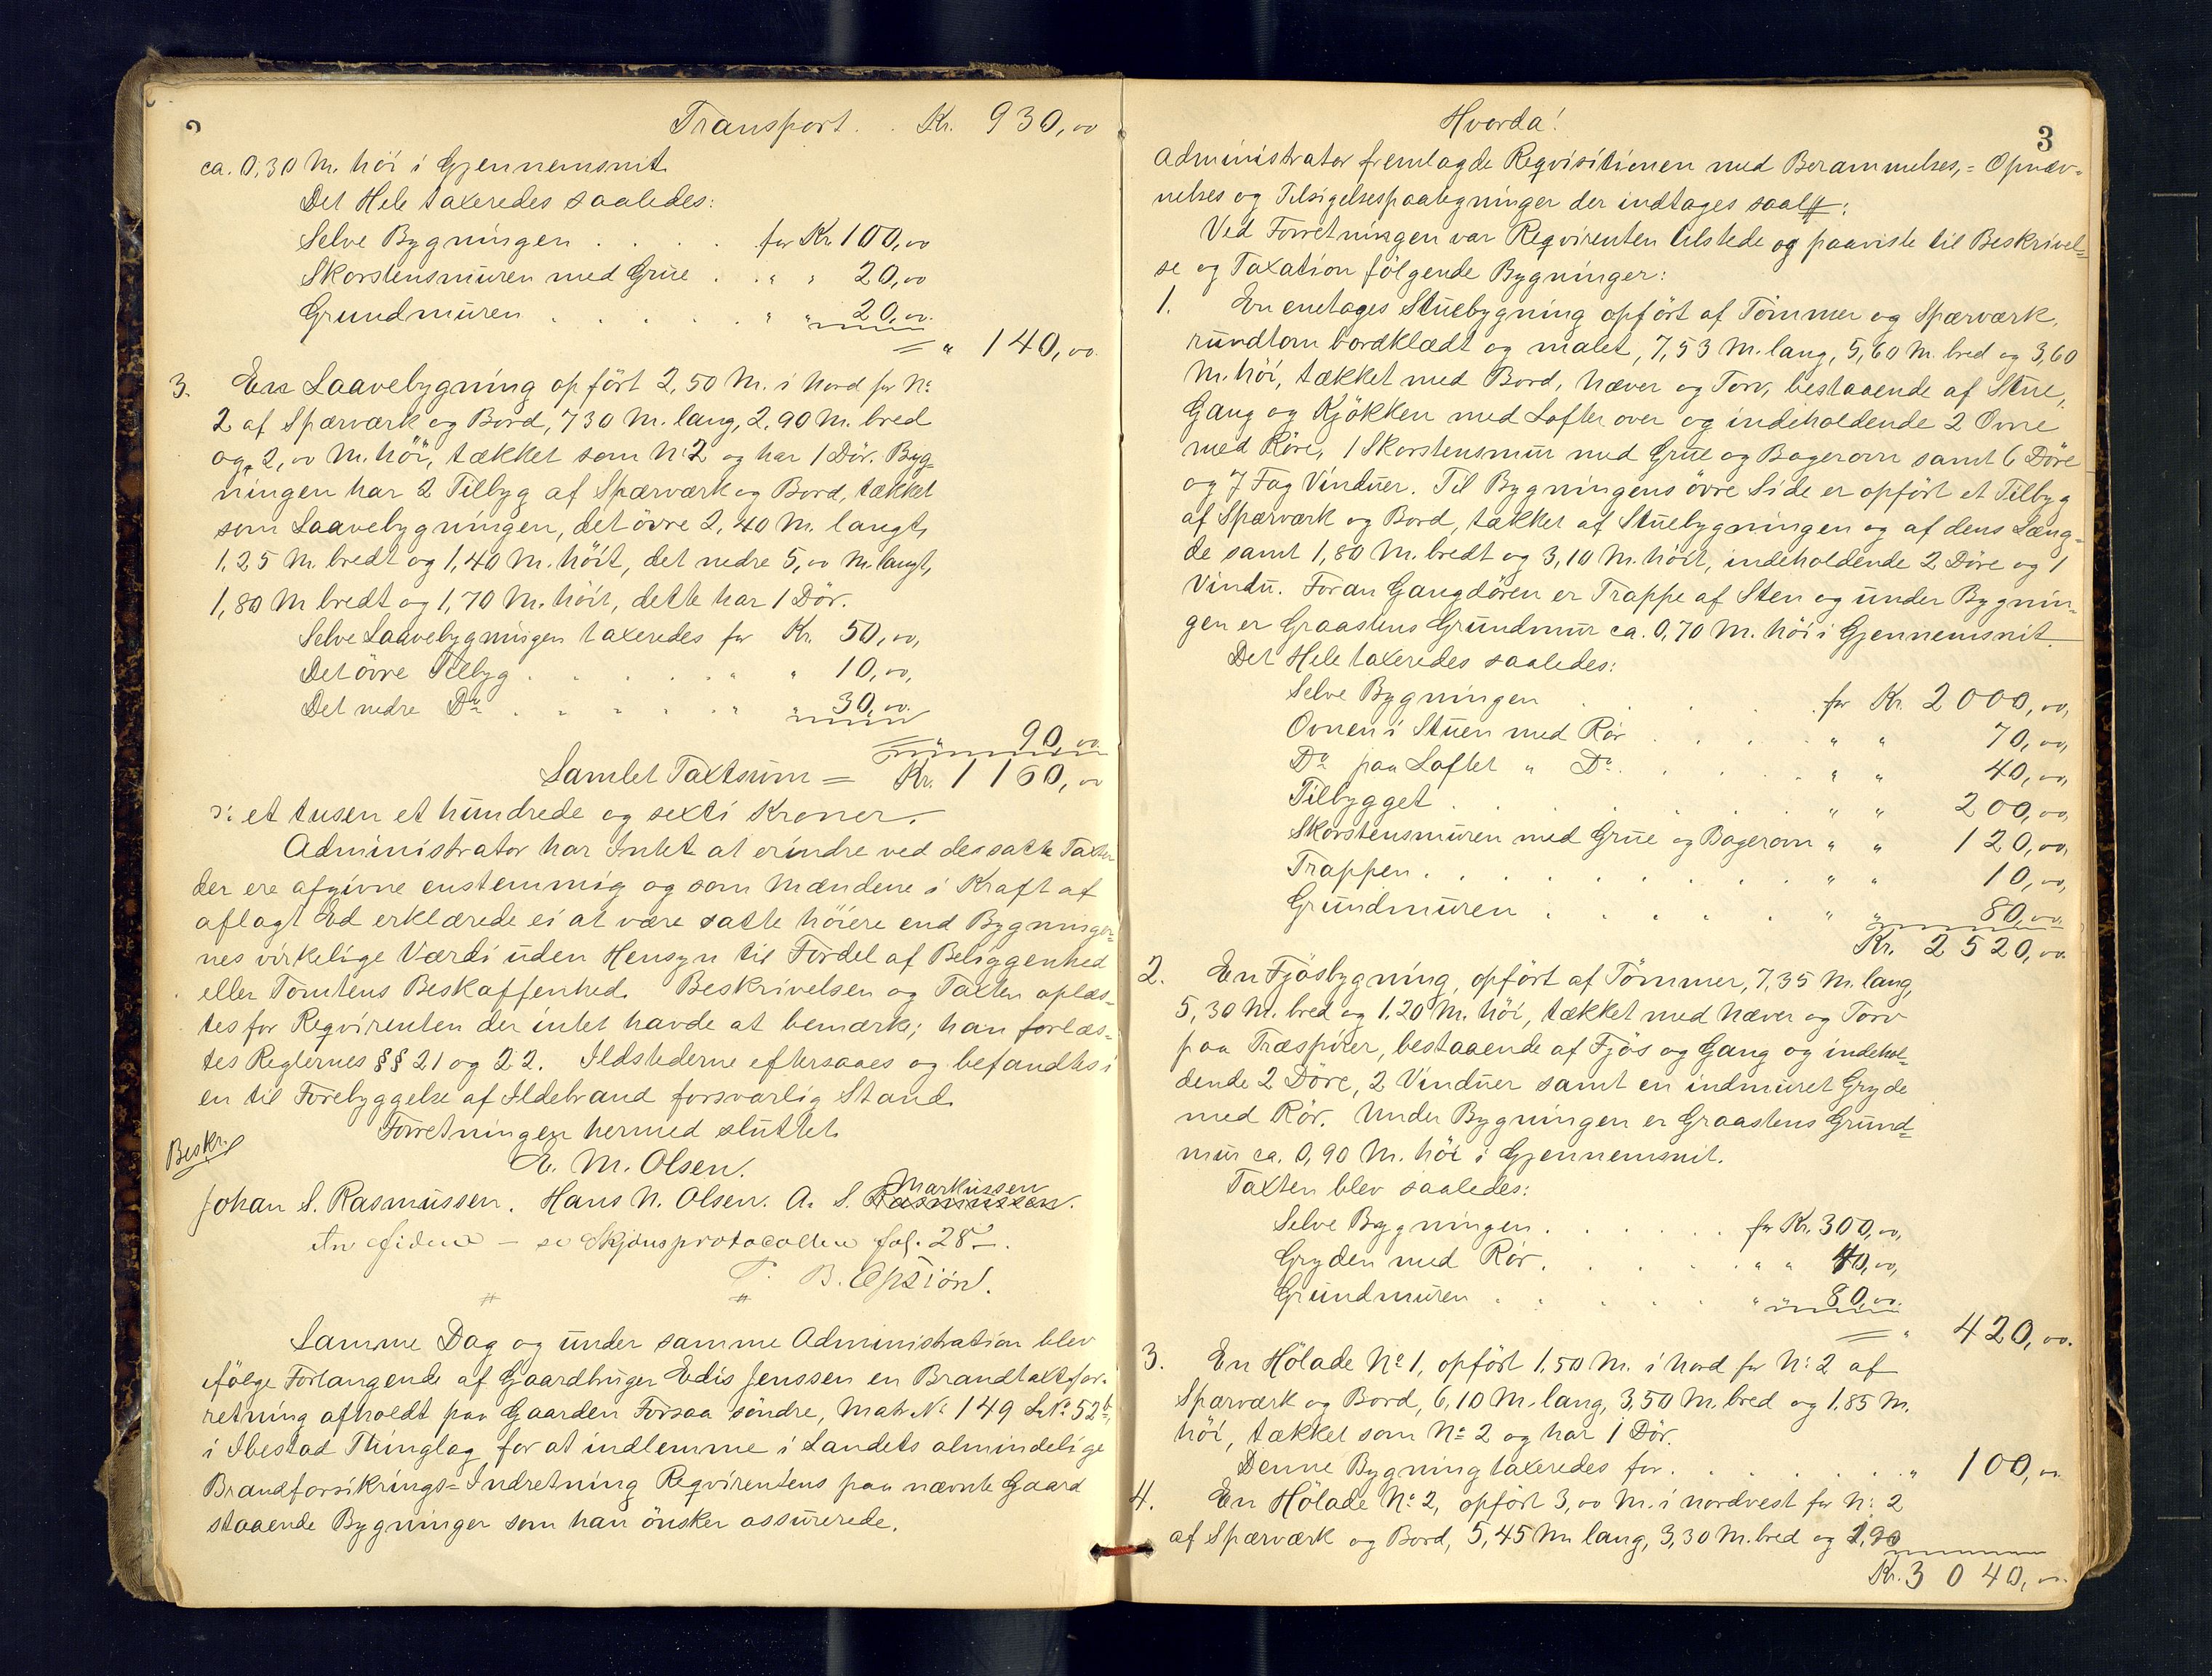 2
Transport. . Kr. 930,00
ca. 0,30 M. höi i Gjennemsnit.
Det Hele taxeredes saaledes:
Selve Bygningen . . . . for Kr 100,00
Skorstensmuren med Grue . . " " 20,00
Grundmuren . . . . . . " " 20,00.
= " 140,00.
3. En Laavebygning opfört 2,50 M. i Nord for No
2 af Spærværk og Bord, 7,30 M. lang, 2,90 M. bred
og 2,00 M. höi, tækket som No 2 og har 1 Dör. Byg-
ningen har 2 Tilbyg af Spærværk og Bord, tækket
som Laavebygningen, det övre 2,40 M. langt,
1,25 M. bredt og 1,40 M. höit, det nedre 5,00 M. langt,
1,80 M bredt og 1,70 M. höit, dette har 1 Dör.
Selve Laavebygningen taxeredes for Kr. 50,00,
Det övre Tilbyg . . . . . " " 10,00,
Det nedre Do . . . . . " " 30,00.
= " 90,00.
Samlet Taxtsum = Kr. 1160,00
ɔ: et tusen et hundrede og sexti Kroner.
Administrator har Intet at erindre ved des satte Taxter
der ere afgivne enstemmig og som Mændene i Kraft af
aflagt Ed erklærede ei at være satte höiere end Bygninger-
nes virkelige Værdi uden Hensyn til Fordel af Beliggenhed
eller Tomtens Beskaffenhed. Beskrivelsen og Taxten oplæs-
tes for Reqvirenten der intet havde at bemærke; han forlæs-
tes Reglernes §§ 21 og 22. Ildstederne eftersaaes og befandtes i
en til Forebyggelse af Ildebrand forsvarlig Stand.
Forretningen hermed sluttet.
Beskr.
E. M. Olsen.
Markussen
Johan S. Rasmussen. Hans N. Olsen. A. S. Rasmussen.
Skjönsprotocollen fol. 28
B.
Samme Dag og under samme Administration blev
ifölge Forlangende af Gaardbruger Edis Jenssen en Brandtaxtfor-
retning afholdt paa Gaarden Forsaa söndre, Matr No 149 L.No 52b,
i Ibestad Thinglag for at indlemme i Landets almindelige
Brandforsikrings=Indretning Reqvirentens paa nævnte Gaard
staaende Bygninger som han önsker assurerede.
3
Hvorda!
Administrator fremlagde Reqvisitionen med Berammelses,= Opnæv-
nelses og Tilsigelsespaategninger der indtages saal:
Ved Forretningen var Reqvirenten tilstede og paaviste til Beskrivel-
se og Taxation fölgende Bygninger:
1. En enetages Stuebygning opfört af Tömmer og Spærværk,
rundtom bordklædt og malet, 7,53 M. lang, 5,60 M. bred og 3,60
M. höi, tækket med Bord, Næver og Torv, bestaaende af Stue,
Gang og Kjökken med Lofter over og indeholdende 2 Ovne
med Röre, 1 Skorstensmur med Grue og Bagerovn samt 6 Döre
og 7 Fag Vinduer. Til Bygningens övre Side er opfört et Tilbyg
af Spærværk og Bord, tækket af Stuebygningen og af dens Læng-
de samt 1,80 M. bredt og 3,10 M. höit, indeholdende 2 Döre og 1
Vindu. Foran Gangdören er Trappe af Sten og under Bygnin-
gen er Graastens Grundmur ca. 0,70 M. höi i Gjennemsnit.
Det Hele taxeredes saaledes:
Selve Bygningen . . . . . for Kr. 2000,00,
Ovnen i Stuen med Rör . . . . " " 70,00,
Do paa Loftet " Do . . . . . " " 40,00,
Tilbygget . . . . . . . " " 200,00,
Skorstensmuren med Grue og Bagerovn " " 120,00,
Trappen . . . . . . . . " " 10,00,
Grundmuren . . . . . " " 80,00.
Kr. 2520,00.
2. En Fjösbygning, opfört af Tömmer, 7,35 M. lang,
5,30 M. bred og 1,20 M. höi, tækket med Næver og Torv
paa Træspirer, bestaaende af Fjös og Gang og indehol-
dende 2 Döre, 2 Vinduer samt en indmuret Gryde
med Rör. Under Bygningen er Graastens Grund-
mur ca. 0,90 M. höi i Gjennemsnit.
Taxten blev saaledes:
Selve Bygningen . . . . . . for Kr. 300,00,
Gryden med Rör . . . . . " " 40,00,
Grundmuren . . . . . " " 80,00.
= " 420,00.
3. En Hölade No 1, opfört 1,50 M. i Nord for No 2 af
Spærværk og Bord, 6,10 M. lang, 3,50 M. bred og 1,85 M.
höi, tækket som No 2 og har 1 Dör.
Denne Bygning taxeredes for . . . . . . . " 100,00.
4. En Hölade No 2, opfört 3,00 M. i nordvest for No 2
af Spærværk og Bord, 5,45 M. lang, 3,30 M. bred og 1,90
Kr. 3040,00.